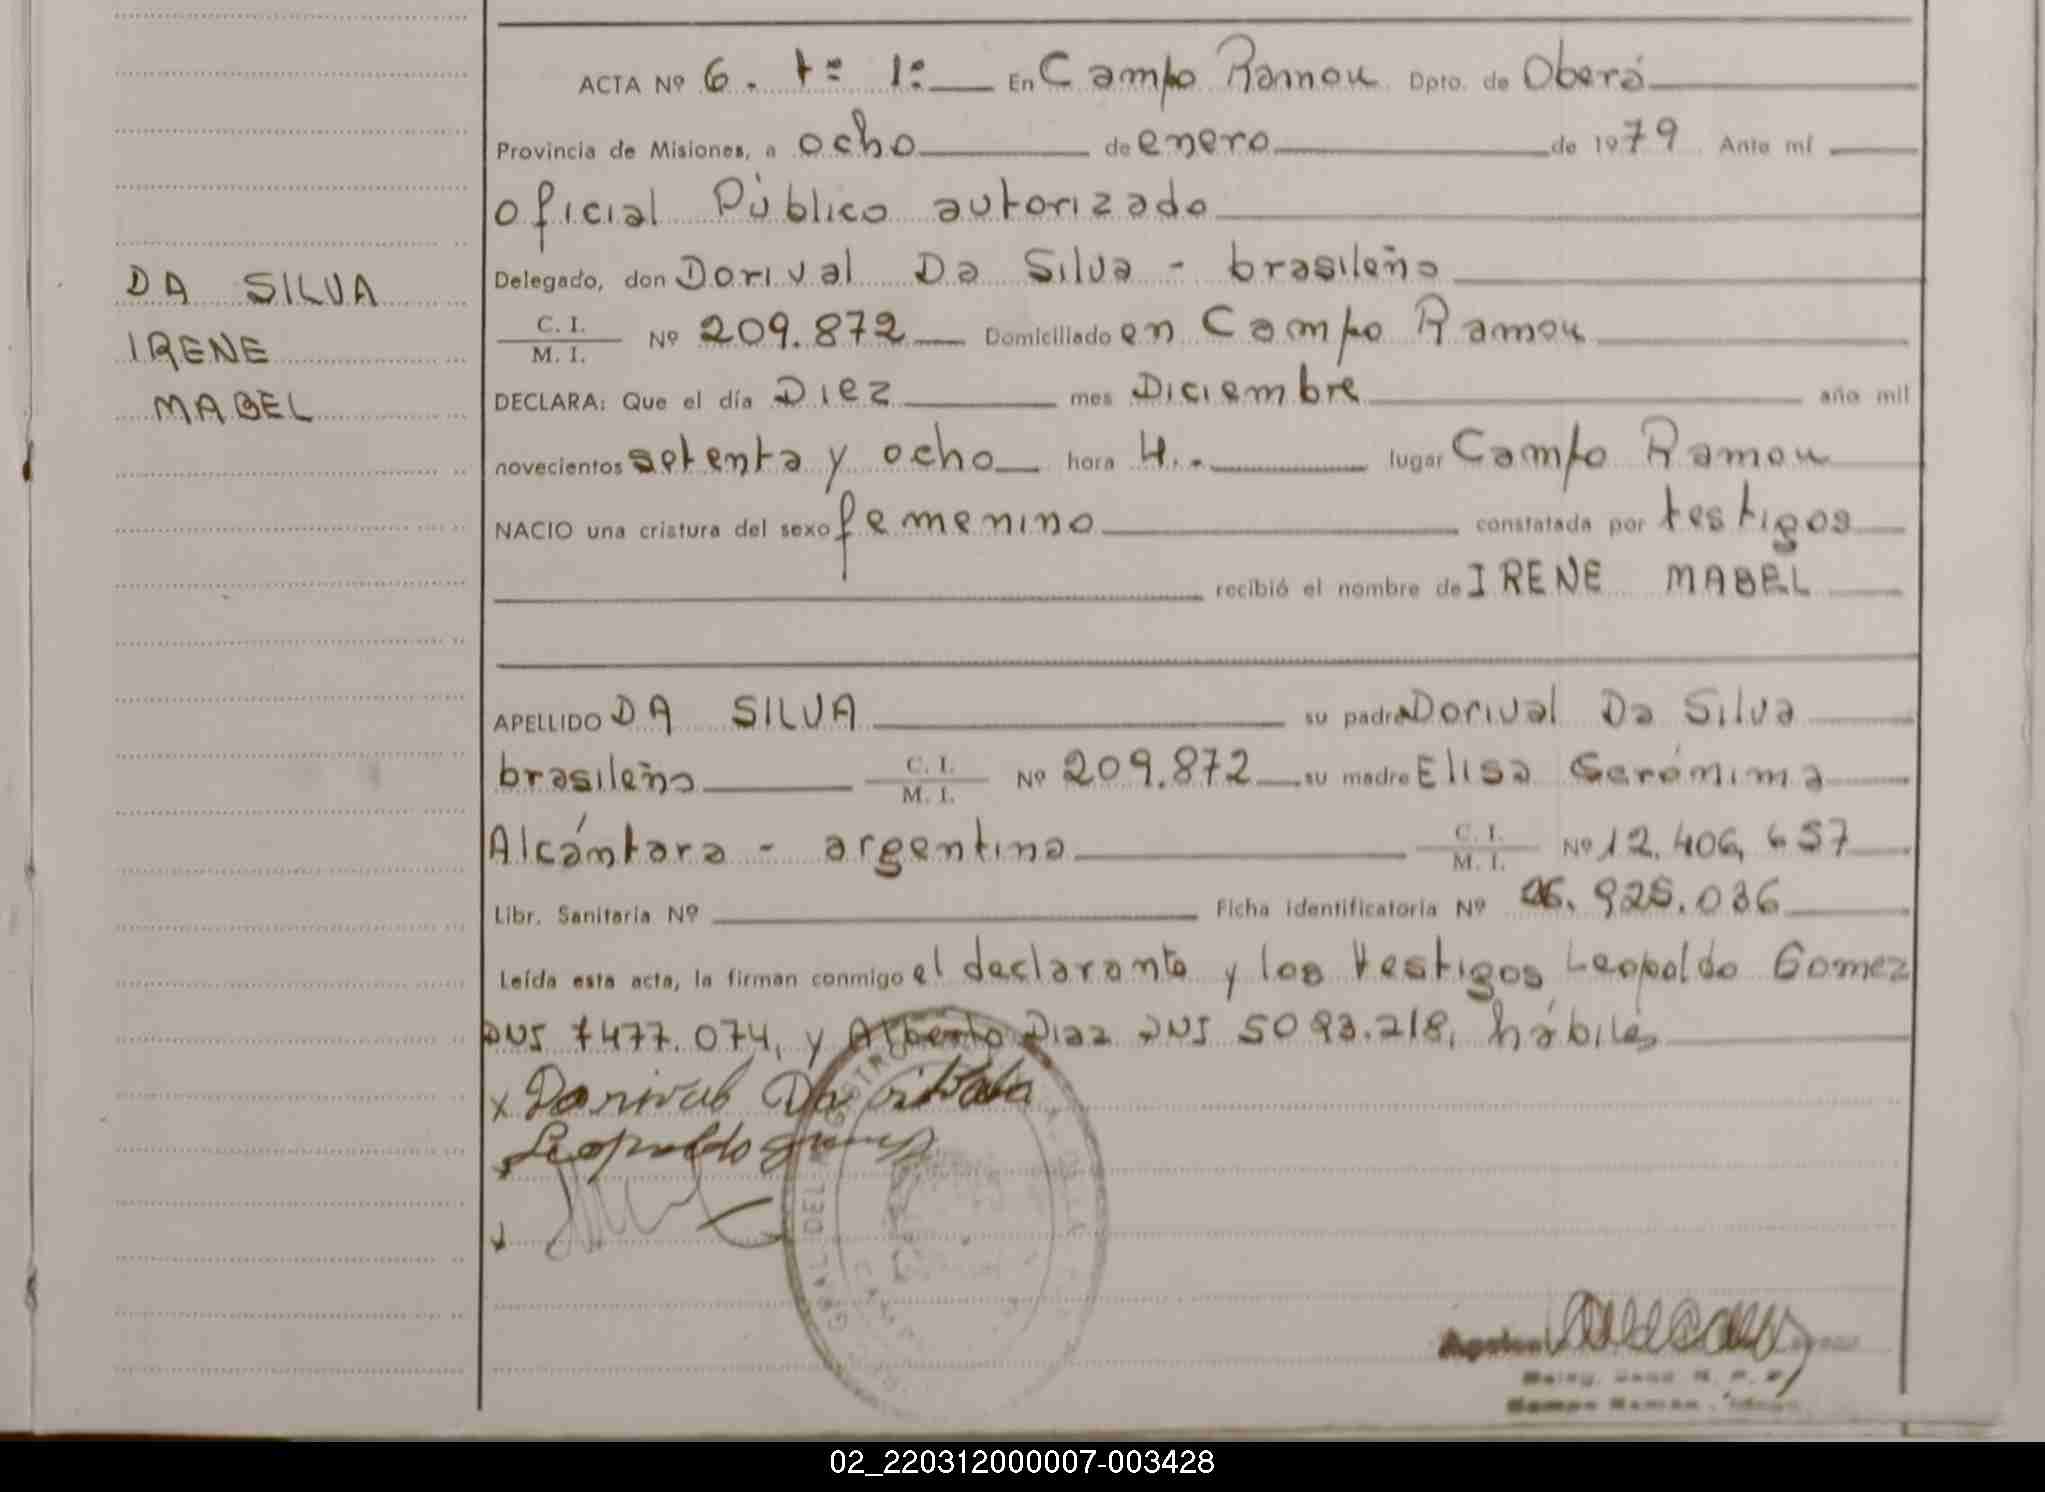 ACTA Nº 6. tº 1: En Campo Ramon Dpto. de Oberá
Provincia de Misiones, a ocho de enero de 1979 Ante mí
oficial Público autorizado
Delegado, don Dorival Da Silva - brasileño
C. I.
M. I. Nº 209.872 Domiciliado en Campo Ramon
DECLARA: Que el día Diez mes Diciembre año mil
novecientos setenta y ocho hora 4. lugar Campo Ramon
NACIO una criatura del sexo femenino constatada por testigos
recibió el nombre de IRENE MABEL
DA SILVA
IRENE
MABEL
APELLIDO DA SILVA su padre Dorival Da Silva
brasileño C. I.
M. I. Nº 209.872 su madre Elisa Gerónima
Alcántara - argentina C. I.
M. I. Nº 12.406,657
Libr. Sanitaria Nº Ficha identificatoria Nº 26.925.036
Leída esta acta, la firman conmigo el declarante y los testigos Leopoldo Gomez
DNI 7477.074, y Alberto Diaz DNI 5093.218, hábiles
x Dorival Da Silva
Leopoldo gomez
GRAL DEL REGISTR
02_220312000007-003428